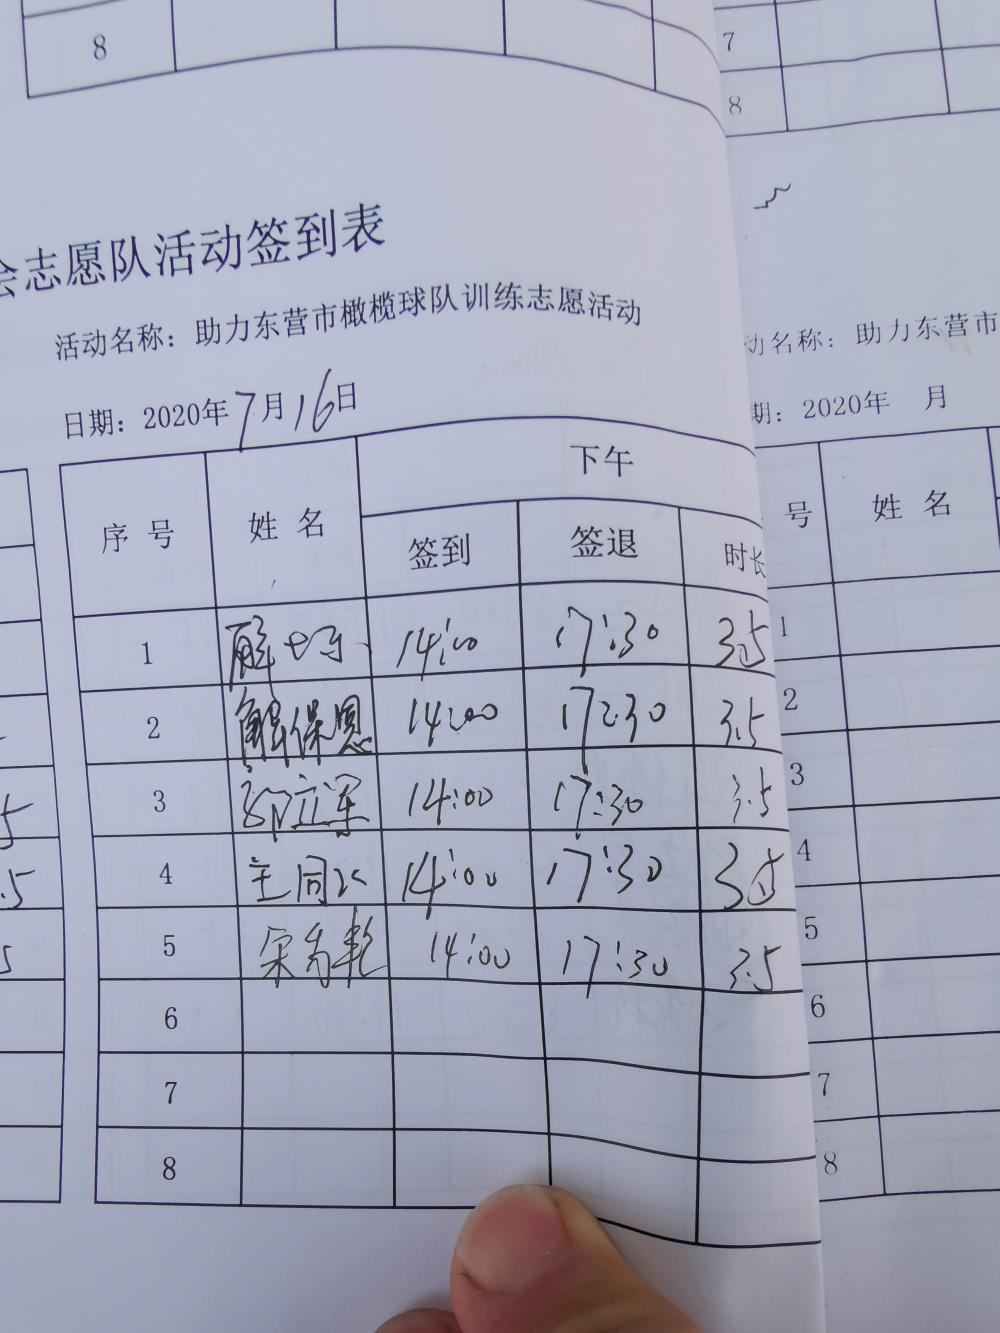 8
7
8
会志愿队活动签到表
活动名称：助力东营市橄榄球队训练志愿活动
动名称：助力东营市
日期：2020年7月16日
期：2020年 月
序号 姓名 下午
签到 签退 时长
号 姓名
1 14:00 17:30 3.5
2 解保恩 14:00 17:30 3.5
3 邵立军 14:00 17:30 3.5
4 14:00 17:30 3.5
5 14:00 17:30 3.5
6
7
8
1
2
3
4
5
6
7
8
5
.5
5